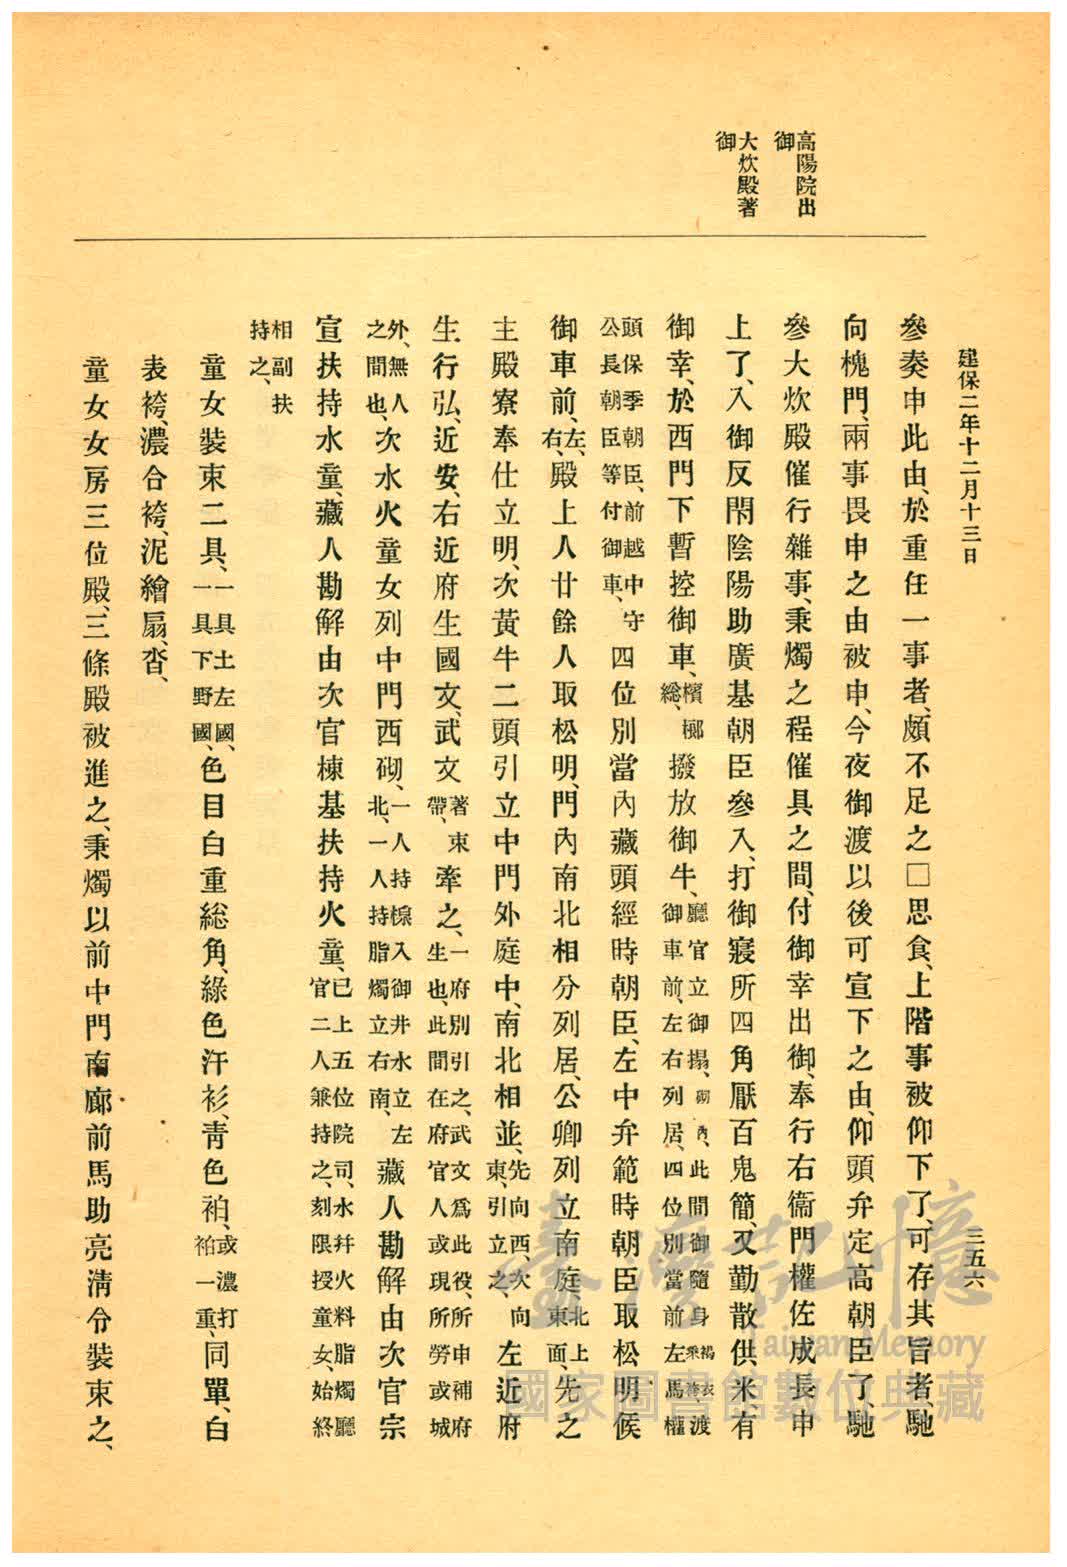 建保二年十二月十三日
三五六
高陽院出
御
大炊殿著
御
參奏申此由、於重任一事者、頗不足之□思食、上階事被仰下了、可存其旨者、馳
向槐門、兩事畏申之由被申、今夜御渡以後可宣下之由、仰頭弁定高朝臣了、馳
參大炊殿催行雜事、秉燭之程催具之間、付御幸出御、奉行右衞門權佐成長申
上了、入御反閇陰陽助廣基朝臣參入、打御寢所四角厭百鬼簡、又勤散供米有
御幸、於西門下暫控御車、檳榔總、撥放御牛、廳官立御搨、砌內、此間御隨身褐衣乘袴、渡御車前、左右列居、四位別當前左馬權
頭保季朝臣、前越中守公長朝臣等付御車、四位別當內藏頭經時朝臣、左中弁範時朝臣取松明候
御車前、左、右、殿上人廿餘人取松明、門內南北相分列居、公卿列立南庭、北上東面、先之
主殿寮奉仕立明、次黃牛二頭引立中門外庭中、南北相並、先向西、次向東、引立之、左近府
生行弘、近安、右近府生國文、武文著束帶、牽之、一府別引之、武文爲此役、所申補府生也、此間在府官人或現所勞或城
外、無人之間也、次水火童女列中門西砌、一人持樑入御井水立左北、一人持脂燭立右南、藏人勘解由次官宗
宣扶持水童、藏人勘解由次官棟基扶持火童、已上五位院司、水幷火料脂燭廳官二人兼持之、刻限授童女、始終
相副扶持之、
童女裝束二具、一具土左國、一具下野國、色目白重総角、綠色汗衫、靑色袙、或濃打袙一重、同單、白
表袴、濃合袴、泥繪扇、沓、
童女女房三位殿、三條殿被進之、秉燭以前中門南廊前馬助亮淸令裝束之、
臺灣記憶
Taiwan Memory
國家圖書館數位典藏